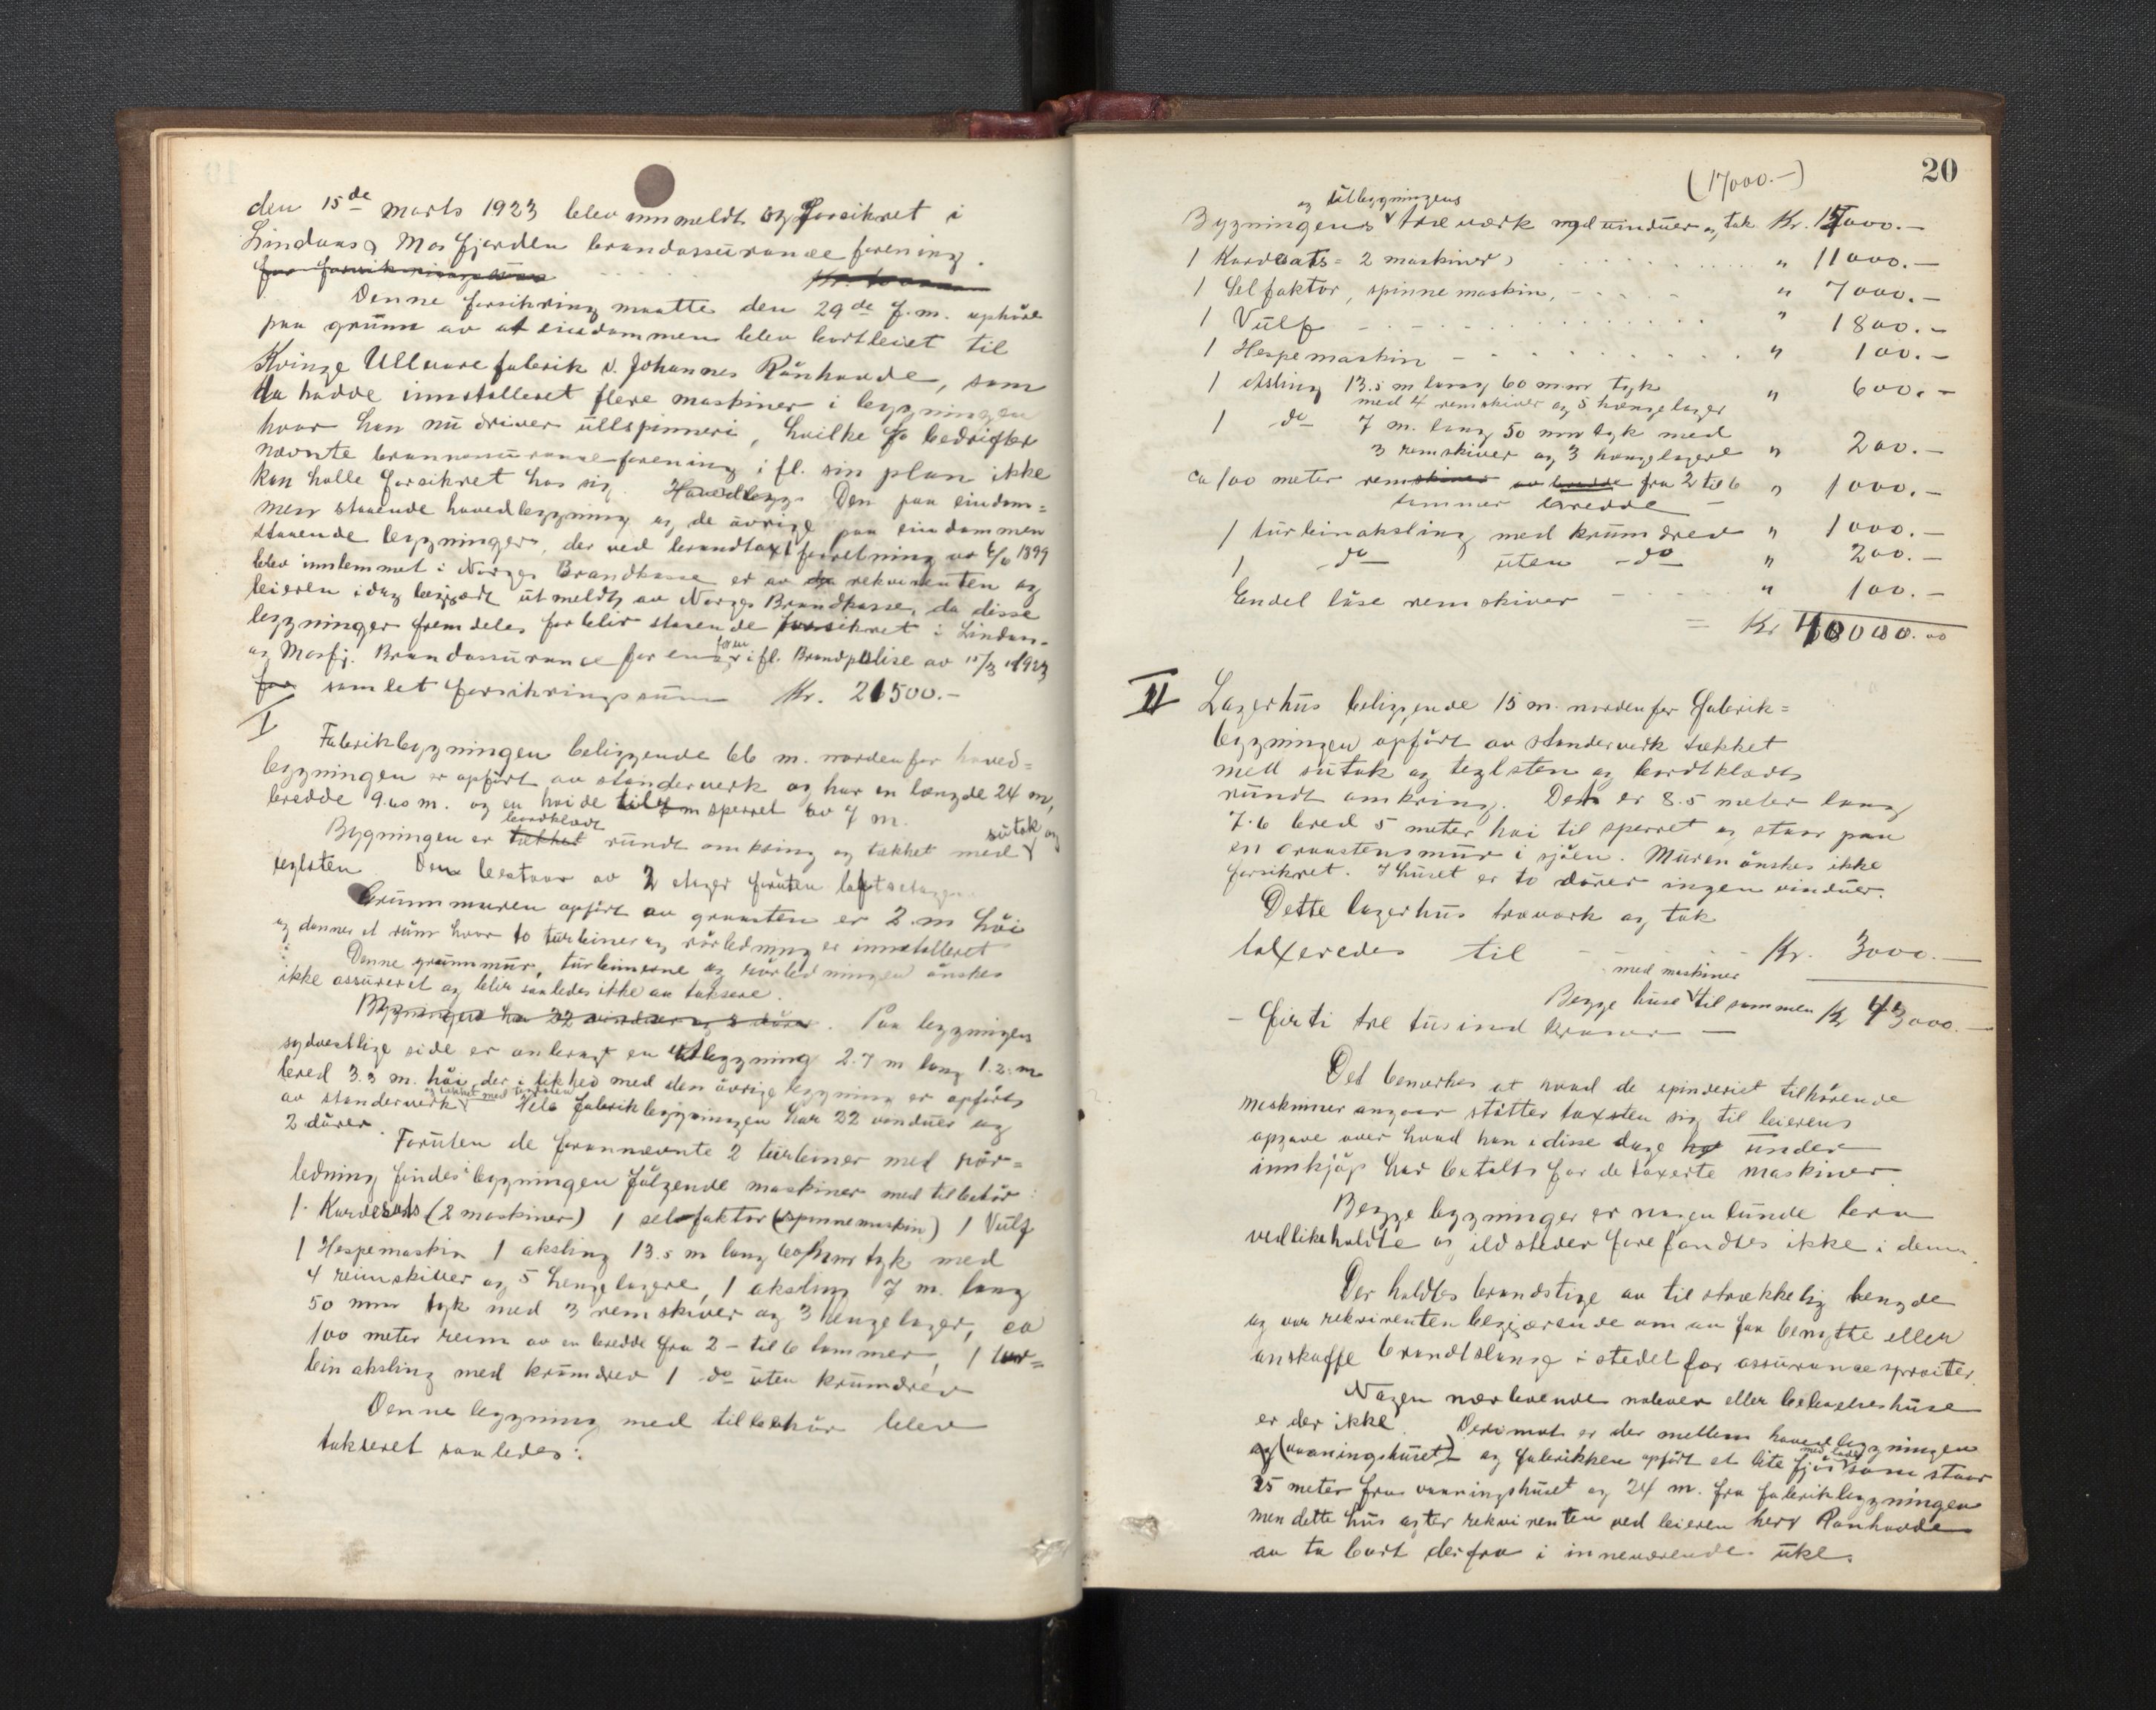 den 15de Marts 1923 blev innmeldt og forsikret i
Lindaas & Masfjorden brandassurance forening.
for forsikringssum Kr.
Denne forsikring maatte den 29de f.m. ophöre
paa grunn av at eiendommen blev bortleiet til
Kvinge Ullvarefabrik v. Johannes Rånhovde, som
da hadde innstalleret flere maskiner i bygningen
hvor han nu driver ullspinneri, hvilke bedrifter
nevnte brannassuranceforening i fl. sin plan ikke
kan holle forsikret hos sig. Den paa eiendom=
men staaende hovedbygning og de övrige paa eiendommen
staaende bygninger, der ved brandtaxtforretning av 6/6 1899
blev innlemmet i Norges Brandkasse er av rekvirenten og
leieren idag begjært utmeldt av Norges Brandkasse, da disse
bygninger fremdeles forblir staaende forsikret i Lindaas-
og Masfj. Brandassurance forening i fl. Brandpolise av 15/3 1923
for samlet forsikringssum Kr. 21500.-
I
Fabrikbygningen beliggende 66 m. nordenfor hoved=
bygningen er opfört av stenderverk og har en længde 24 m,
bredde 9.40 m. og en höide til sperret av 7 m.
bordklædt sutak og
Bygningen er tækket rundt omkring og tækket med
teglsten. Den bestaar av 2 etager foruten loftsetagen.
Grunnmuren opfört av graasten er 2 m höi
og danner et rum hvor to turbiner og rörledning er innstalleret
Denne grunnmur, turbinerne og rörledningen önskes
ikke assureret og blir saaledes ikke au taksere.
Bygningen har 22 vinduer og 2 dörer. Paa bygningen
sydvestlige side er anbragt en utbygning 2.7 m lang 1.2 m
bred 3.3 m. höi, der i likhed med den övrige bygning er opfört
og tækket med teglsten
av stenderverk Hele fabrikbygningen har 22 vinduer og
2 dörer. Foruten de forannevnte 2 turbiner med rör=
ledning findes i bygningen fölgende maskiner med tilbehör:
1 Kardesats (2 maskiner) 1 selfaktor (spinnemaskin) 1 Vulf
1 Hespemaskin 1 aksling 13.5 m lang 60 mm tyk med
4 reimskiver og 5 hengelagere, 1 aksling 7 m. lang
50 mm tyk med 3 remskiver og 3 hengelager, ca
100 meter reim av en bredde fra 2 - til 6 tommer, 1 tur=
bin aksling med krumdrev 1 do uten krumdrev
Denne bygning med tilbehör blev
takseret saaledes:
20
(17000.-)
og utbygningens
Bygningens træverk med vinduer og tak Kr. 17000.-
1 Kardesats = 2 maskiner) " 11000.-
1 Selfaktor, spinnemaskin, " 7000.-
1 Vulf " 1800.-
1 Hespemaskin " 100.-
1 Aksling 13.5 m lang 60 mm tyk " 600.-
med 4 remskiver og 5 hængelager
1 do 7 m. lang 50 mm tyk med
3 remskiver og 3 hængelagere " 200.-
ca 100 meter rem fra 2 til 6 " 1000.-
tommer bredde -
1 turbinaksling med krumdrev " 1000.-
1 do uten do " 200.-
Endel löse remskiver " 100.-
= Kr 40000.00
II Lagerhus beliggende 15 m. nordenfor fabrik=
bygningen opfört av stenderverk tækket
med sutak og teglsten og bordklædt
rundt omkring. Det er 8.5 meter lang
7.6 bred 5 meter höi til sperret og staar paa
en graastensmur i sjöen. Muren önskes ikke
forsikret. I huset er to dörer ingen vinduer.
Dette lagerhus træverk og tak
taxeredes til Kr. 3000.-
med maskiner
Begge huse tilsammen Kr 43000.-
- förti tre tusind kroner -
Det bemerkes at hvad de spinneriet tilhörende
maskinner angaar stötter taxsten sig til leierens
opgave over hvad han i disse dage under
innkjöp har betalt for de taxerte maskiner.
Begge bygninger er nogenlunde bra
vedlikeholdte og ildsteder forefandtes ikke i dem.
Der holdtes brandstige av tilstrækkelig lengde
og var rekvirenten begjærende om au faa benytte eller
anskaffe brandtslange i stedet for assurancesprøiter.
Nogen nærboende naboer eller beboelseshuse
er der ikke. Derimot er der mellem hovedbygningen
med lade
(vaaningshuset) og fabrikken opfört et lite fjös som staar
25 meter fra vaaningshuset og 24 m. fra fabrikbygningen
men dette hus agter rekvirenten ved leieren herr Rånhovde
au ta bort derfra i inneværende uke.